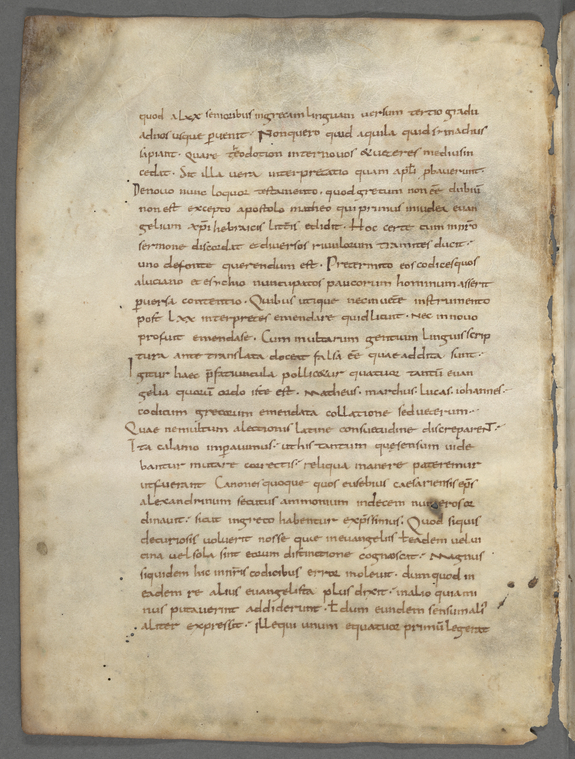 quod a lxx senioribus ingrecam linguam uersum tertio gradu
adnos usque puenit· Nonquero quid aquila quid simachus
sapiant· Quare teodotion internouos & ueteres medius in
cedit· Sit illa uera interpretatio quam apli pbauerunt·
Denouo nunc loquor testamento· quod gretum non ee dubiu
non est excepto apostolo matheo qui primus iniudea euan
gelium xpi hebraicis litteris edidit· Hoc certe cum in nro
sermone discordat et diuersos riuulorum tramites ducit·
uno defonte querendum est· Pretermito eos codices quos
aluciano et esychio nuncupatos paucorum hominum asserit
puersa contentio· Quibus utique necinuete instrumento
post lxx interpretes emendare quid licuit· Nec in nouo
profuit emendase· Cum multarum gentium linguis scrip
tura ante translata doceat falsa ee quae addita sunt·
Igitur haec pfatiuncula pollicetur quatuor tantu euan
gelia quoru ordo iste est· Matheus· marchus· lucas· iohannes·
codicum grecorum emendata collatione sed ueterum·
Quae nemultum alectionis latine consuetudine discreparent·
Ita calamo inpauimus· ut his tantum que sensum uide
bantur mutare correctis· reliqua manere pateremur
ut fuerant Canones quoque quos eusebius caesariensis eps
alexandrinum secutus ammonium indecem numeros or
dinauit· sicut ingreco habentur expssimus· Quod siquis
decuriosis uoluerit nosse que ineuangeliis t eadem uel ui
cina uel sola sint eorum distinctione cognoscat· Magnus
siquidem hic innris codicibus error inoleuit· dum quod in
eadem re alius euangelista plus dixit· inalio quia mi
nus putauerint addiderunt· t dum eundem sensum ali
aliter expressit· Ille qui unum equatuor primu legerat